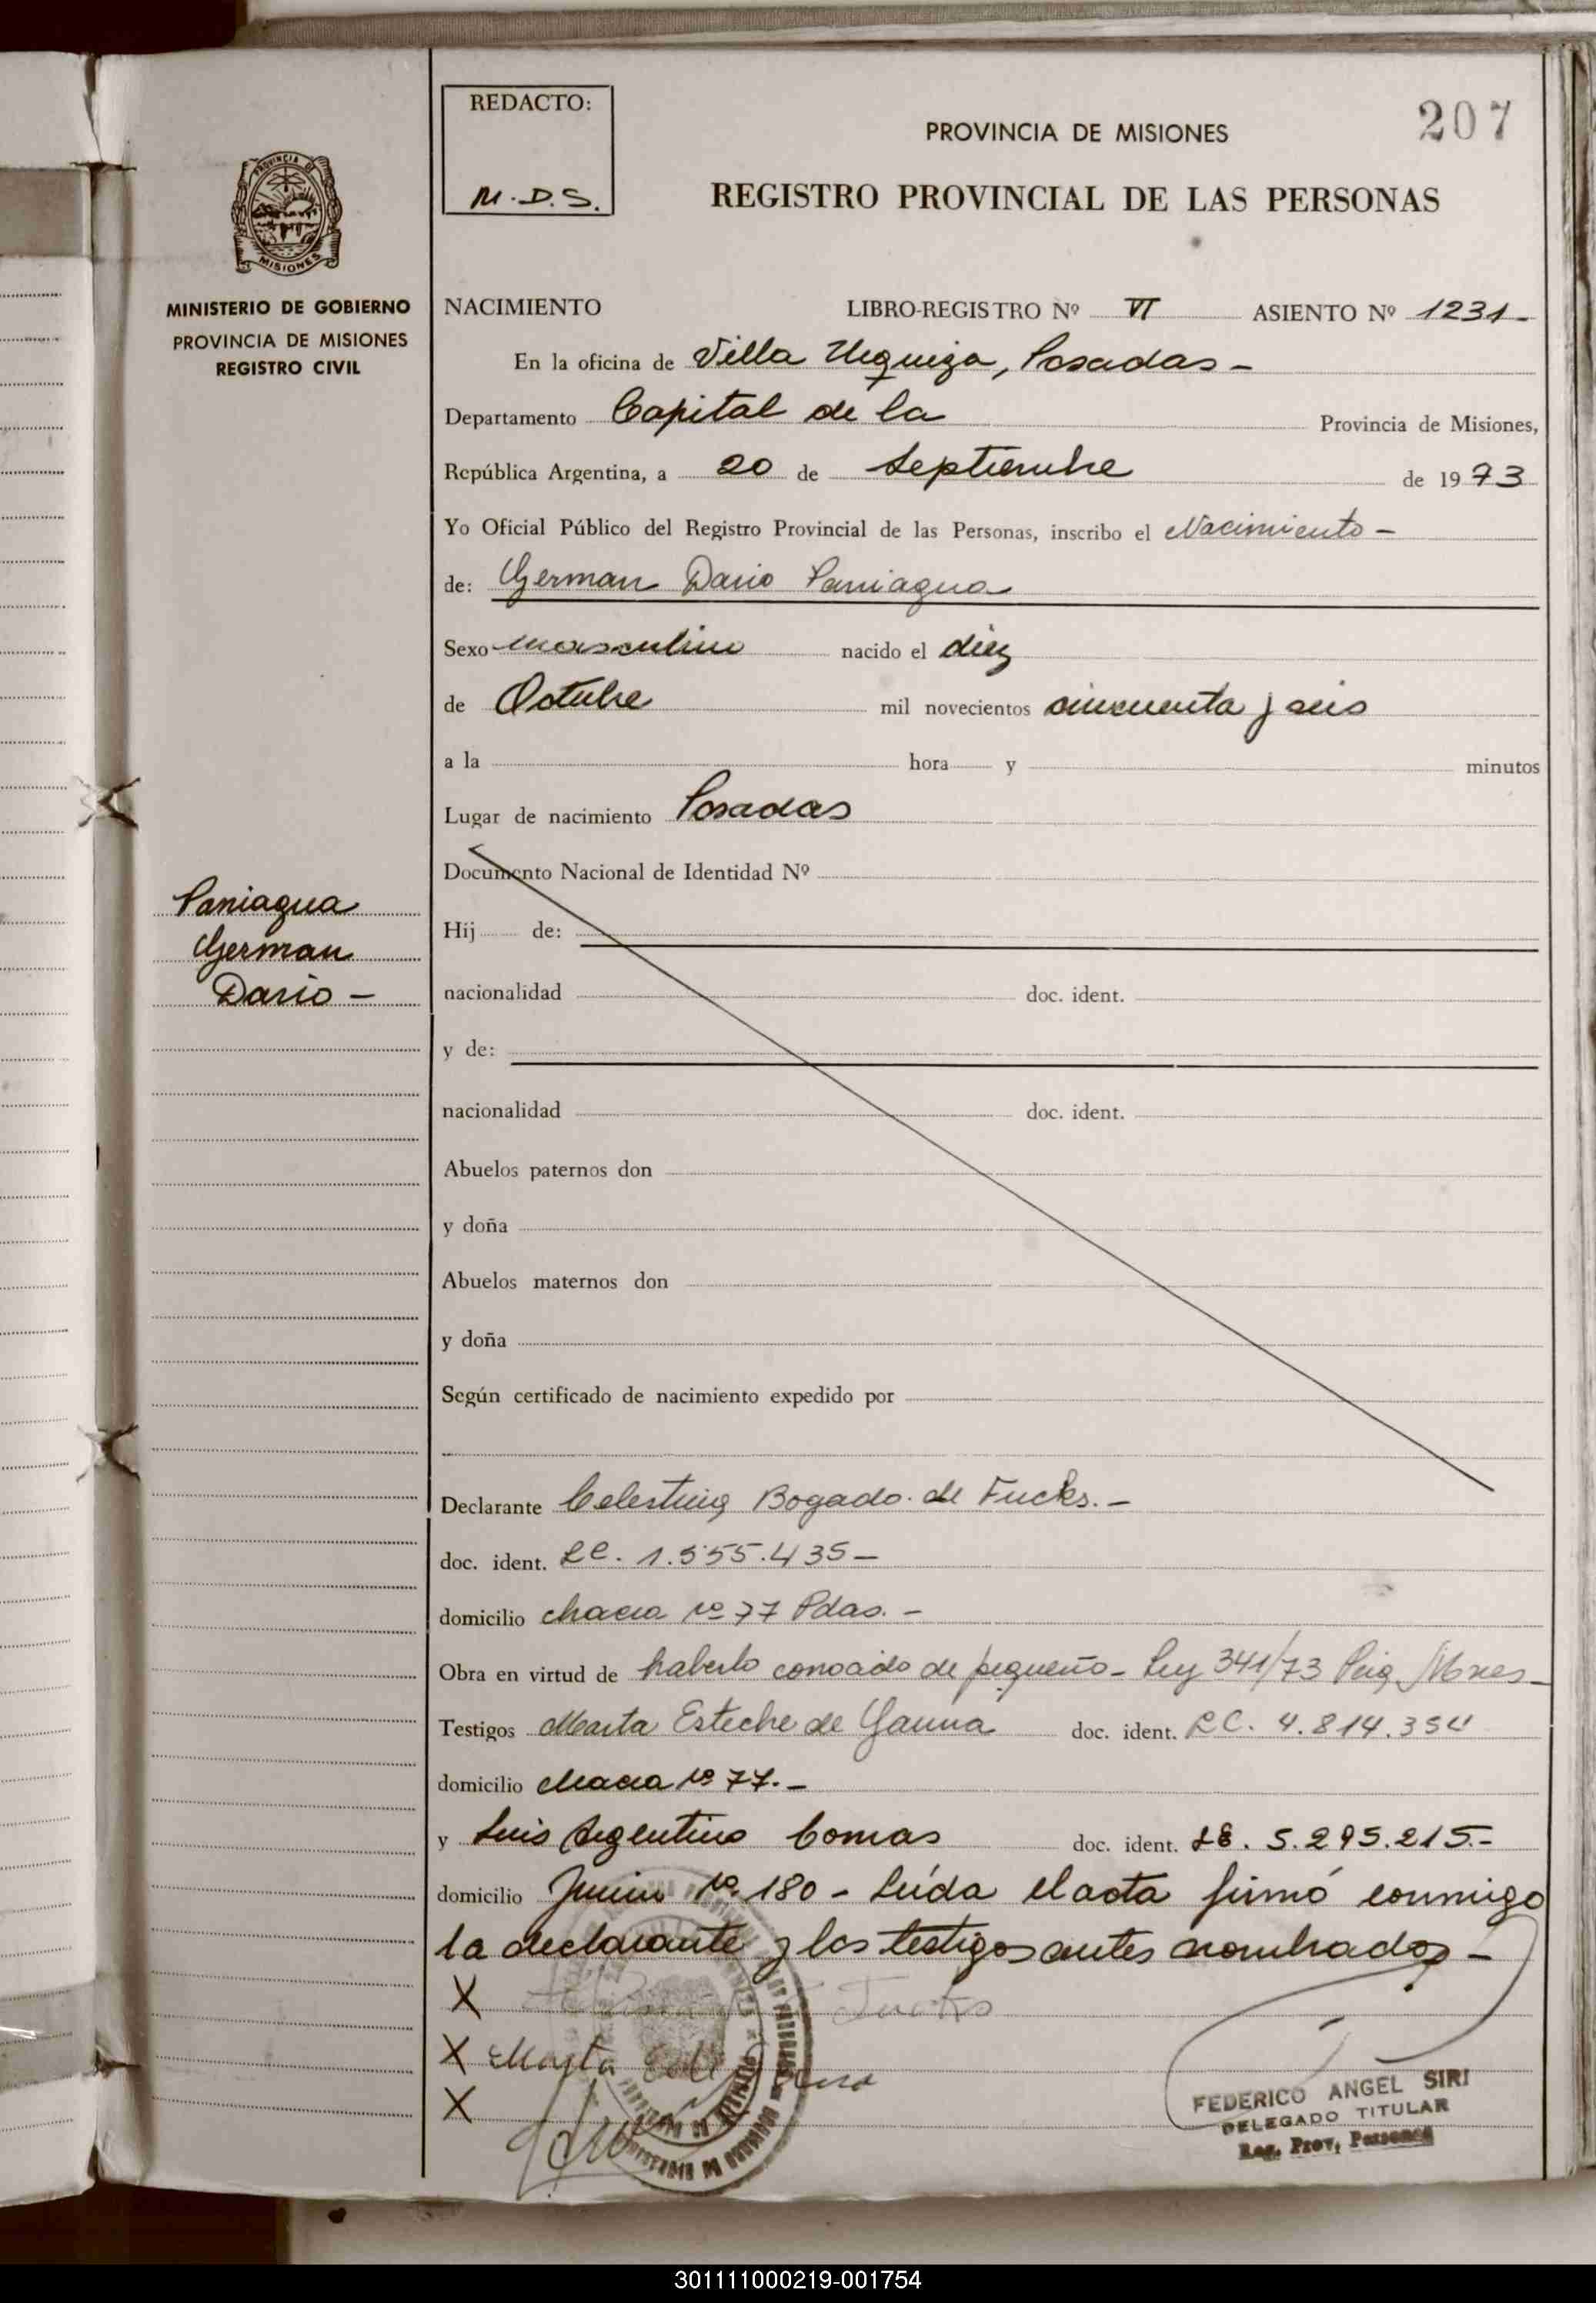 207
REDACTO:
M.D.S.
PROVINCIA DE MISIONES
REGISTRO PROVINCIAL DE LAS PERSONAS
PROVINCIA DE
MISIONES
MINISTERIO DE GOBIERNO
PROVINCIA DE MISIONES
REGISTRO CIVIL
NACIMIENTO LIBRO-REGISTRO Nº VI ASIENTO Nº 1231-
En la oficina de Villa Urquiza, Posadas -
Departamento Capital de la Provincia de Misiones,
República Argentina, a 20 de Septiembre de 1973
Yo Oficial Público del Registro Provincial de las Personas, inscribo el Nacimiento -
de: German Dario Paniagua
Sexo masculino nacido el diez
de Octubre mil novecientos cincuenta y seis
a la hora y minutos
Lugar de nacimiento Posadas
Documento Nacional de Identidad Nº
Paniagua
German
Dario -
Hij de:
nacionalidad doc. ident.
y de:
nacionalidad doc. ident.
Abuelos paternos don
y doña
Abuelos maternos don
y doña
Según certificado de nacimiento expedido por
Declarante Celestina Bogado de Fucks. -
doc. ident. LC. 1.555.435 -
domicilio chacra Nº 77 Pdas. -
Obra en virtud de haberlo conocido de pequeño - Ley 341/73 Mnes -
Testigos Marta Esteche de Gauna doc. ident. LC. 4.814.354
domicilio chacra Nº 77. -
y Luis Argentino Comas doc. ident. LE. 5.295.215.-
domicilio Junin Nº 180 - Leída el acta firmó conmigo
la declarante y los testigos antes nombrados -
X Fucks
X Marta
X
FEDERICO ANGEL SIRI
DELEGADO TITULAR
Reg. Prov. Personas
301111000219-001754